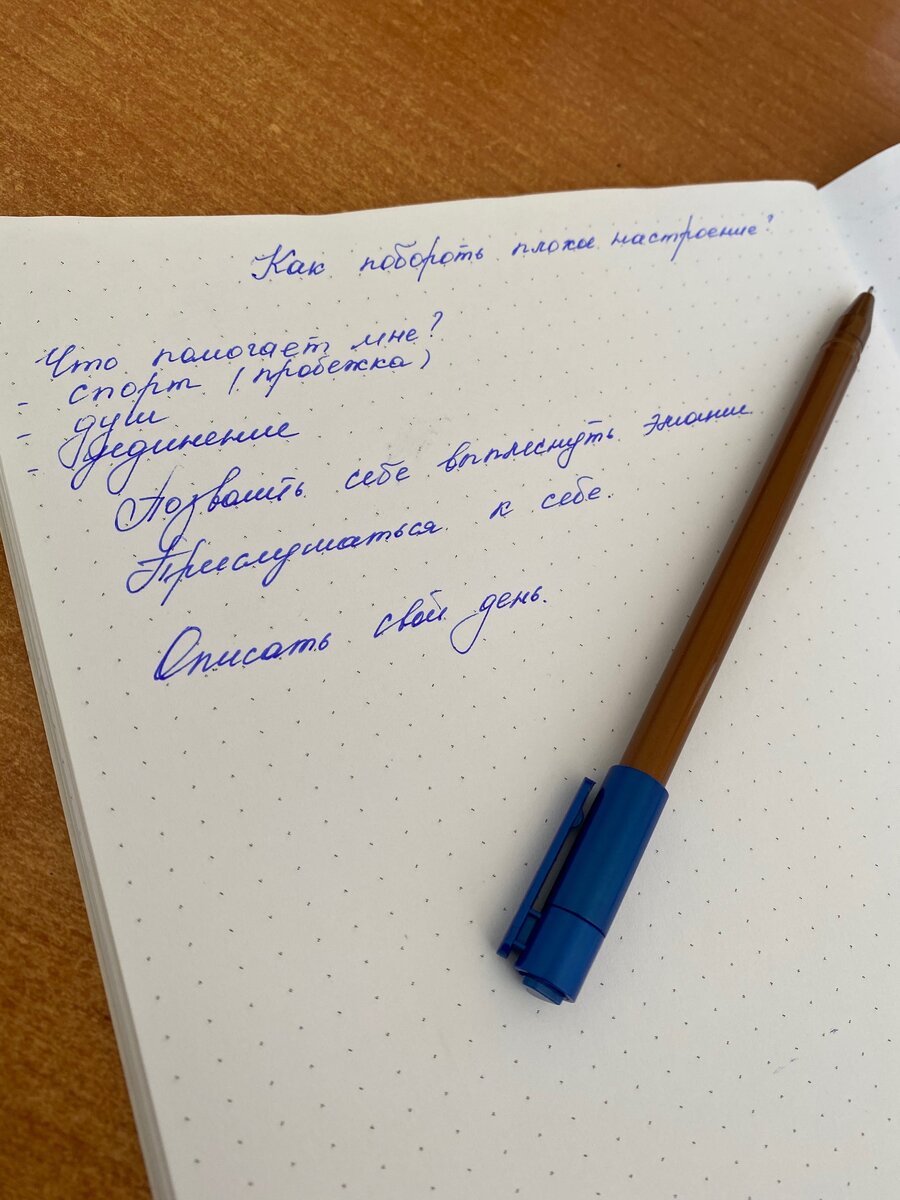 Как побороть плохое настроение?
Что помогает мне?
- спорт (пробежка)
- душ
- уединение
Позволить себе выплеснуть эмоции
Прислушаться к себе.
Описать свой день.